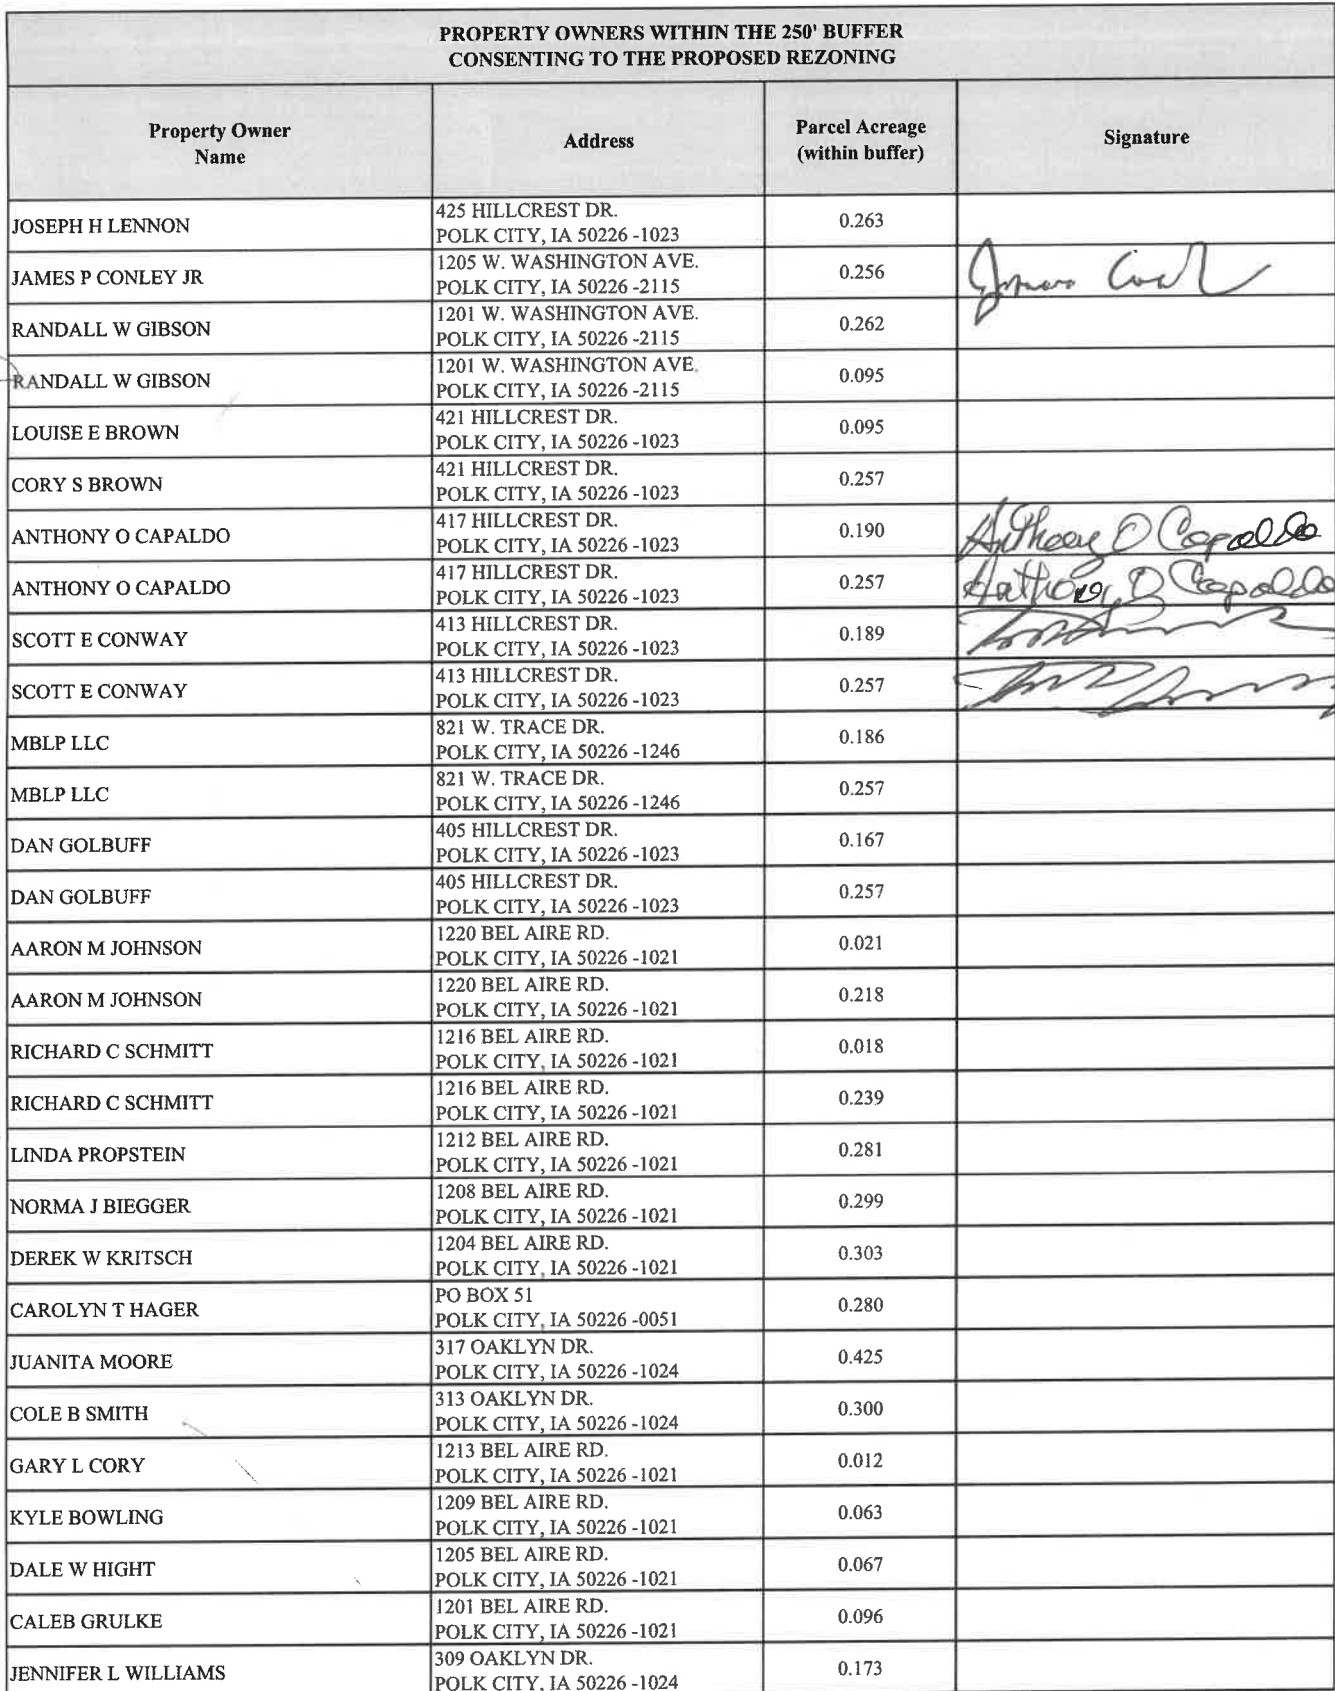 PROPERTY OWNERS WITHIN THE 250' BUFFER
CONSENTING TO THE PROPOSED REZONING
Property Owner
Name
Address
Parcel Acreage
(within buffer)
Signature
JOSEPH H LENNON
425 HILLCREST DR.
POLK CITY, IA 50226 -1023
0.263
JAMES P CONLEY JR
1205 W. WASHINGTON AVE.
POLK CITY, IA 50226 -2115
0.256
James
RANDALL W GIBSON
1201 W. WASHINGTON AVE.
POLK CITY, IA 50226 -2115
0.262
RANDALL W GIBSON
1201 W. WASHINGTON AVE.
POLK CITY, IA 50226 -2115
0.095
LOUISE E BROWN
421 HILLCREST DR.
POLK CITY, IA 50226 -1023
0.095
CORY S BROWN
421 HILLCREST DR.
POLK CITY, IA 50226 -1023
0.257
ANTHONY O CAPALDO
417 HILLCREST DR.
POLK CITY, IA 50226 -1023
0.190
Anthony O Capaldo
ANTHONY O CAPALDO
417 HILLCREST DR.
POLK CITY, IA 50226 -1023
0.257
Anthony O Capaldo
SCOTT E CONWAY
413 HILLCREST DR.
POLK CITY, IA 50226 -1023
0.189
SCOTT E CONWAY
413 HILLCREST DR.
POLK CITY, IA 50226 -1023
0.257
MBLP LLC
821 W. TRACE DR.
POLK CITY, IA 50226 -1246
0.186
MBLP LLC
821 W. TRACE DR.
POLK CITY, IA 50226 -1246
0.257
DAN GOLBUFF
405 HILLCREST DR.
POLK CITY, IA 50226 -1023
0.167
DAN GOLBUFF
405 HILLCREST DR.
POLK CITY, IA 50226 -1023
0.257
AARON M JOHNSON
1220 BEL AIRE RD.
POLK CITY, IA 50226 -1021
0.021
AARON M JOHNSON
1220 BEL AIRE RD.
POLK CITY, IA 50226 -1021
0.218
RICHARD C SCHMITT
1216 BEL AIRE RD.
POLK CITY, IA 50226 -1021
0.018
RICHARD C SCHMITT
1216 BEL AIRE RD.
POLK CITY, IA 50226 -1021
0.239
LINDA PROPSTEIN
1212 BEL AIRE RD.
POLK CITY, IA 50226 -1021
0.281
NORMA J BIEGGER
1208 BEL AIRE RD.
POLK CITY, IA 50226 -1021
0.299
DEREK W KRITSCH
1204 BEL AIRE RD.
POLK CITY, IA 50226 -1021
0.303
CAROLYN T HAGER
PO BOX 51
POLK CITY, IA 50226 -0051
0.280
JUANITA MOORE
317 OAKLYN DR.
POLK CITY, IA 50226 -1024
0.425
COLE B SMITH
313 OAKLYN DR.
POLK CITY, IA 50226 -1024
0.300
GARY L CORY
1213 BEL AIRE RD.
POLK CITY, IA 50226 -1021
0.012
KYLE BOWLING
1209 BEL AIRE RD.
POLK CITY, IA 50226 -1021
0.063
DALE W HIGHT
1205 BEL AIRE RD.
POLK CITY, IA 50226 -1021
0.067
CALEB GRULKE
1201 BEL AIRE RD.
POLK CITY, IA 50226 -1021
0.096
JENNIFER L WILLIAMS
309 OAKLYN DR.
POLK CITY, IA 50226 -1024
0.173